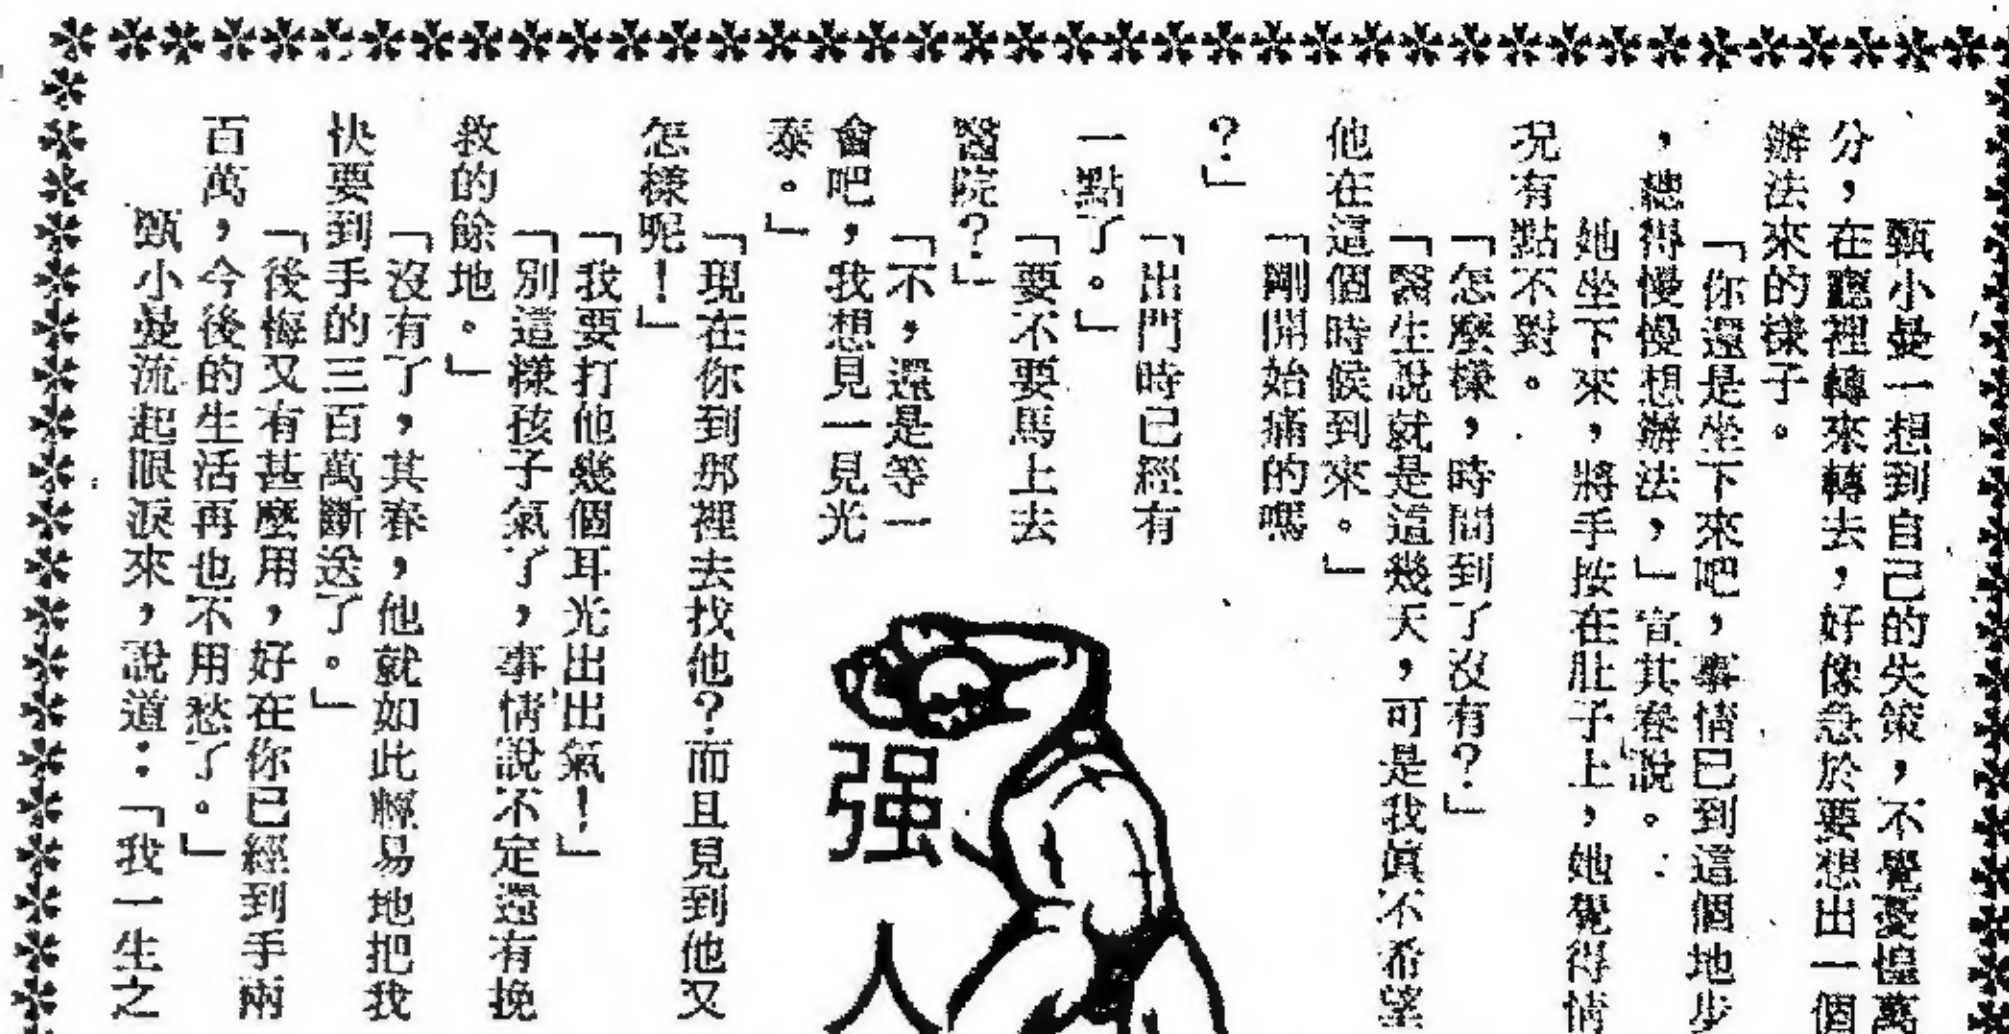 甄小曼一想到自己的失策,不覺憂惶萬
分,在廳裡轉來轉去,好像急於要想出一個
辦法來的樣子。
「你還是坐下來吧,事情已到這個地步
,總得慢慢想辦法,」官其春說。
她坐下來,將手按在肚子上,她覺得情
況有點不對。
「怎麼樣,時間到了沒有?」
「醫生說就是這幾天,可是我真不希望
他在這個時候到來。」
「剛開始痛的嗎
?」
「出門時已經有
一點了。」
「要不要馬上去
醫院?」
「不,還是等一
會吧,我想見一見光
泰。」
「現在你到那裡去找他?而且見到他又
怎樣呢!」
「我要打他幾個耳光出出氣!」
「別這樣孩子氣了,事情說不定還有挽
救的餘地。」
「沒有了,其春,他就如此輕易地把我
快要到手的三百萬斷送了。」
「後悔又有甚麼用,好在你已經到手兩
百萬,今後的生活再也不用愁了。」
甄小曼流起眼淚來,說道:「我一生之
强人